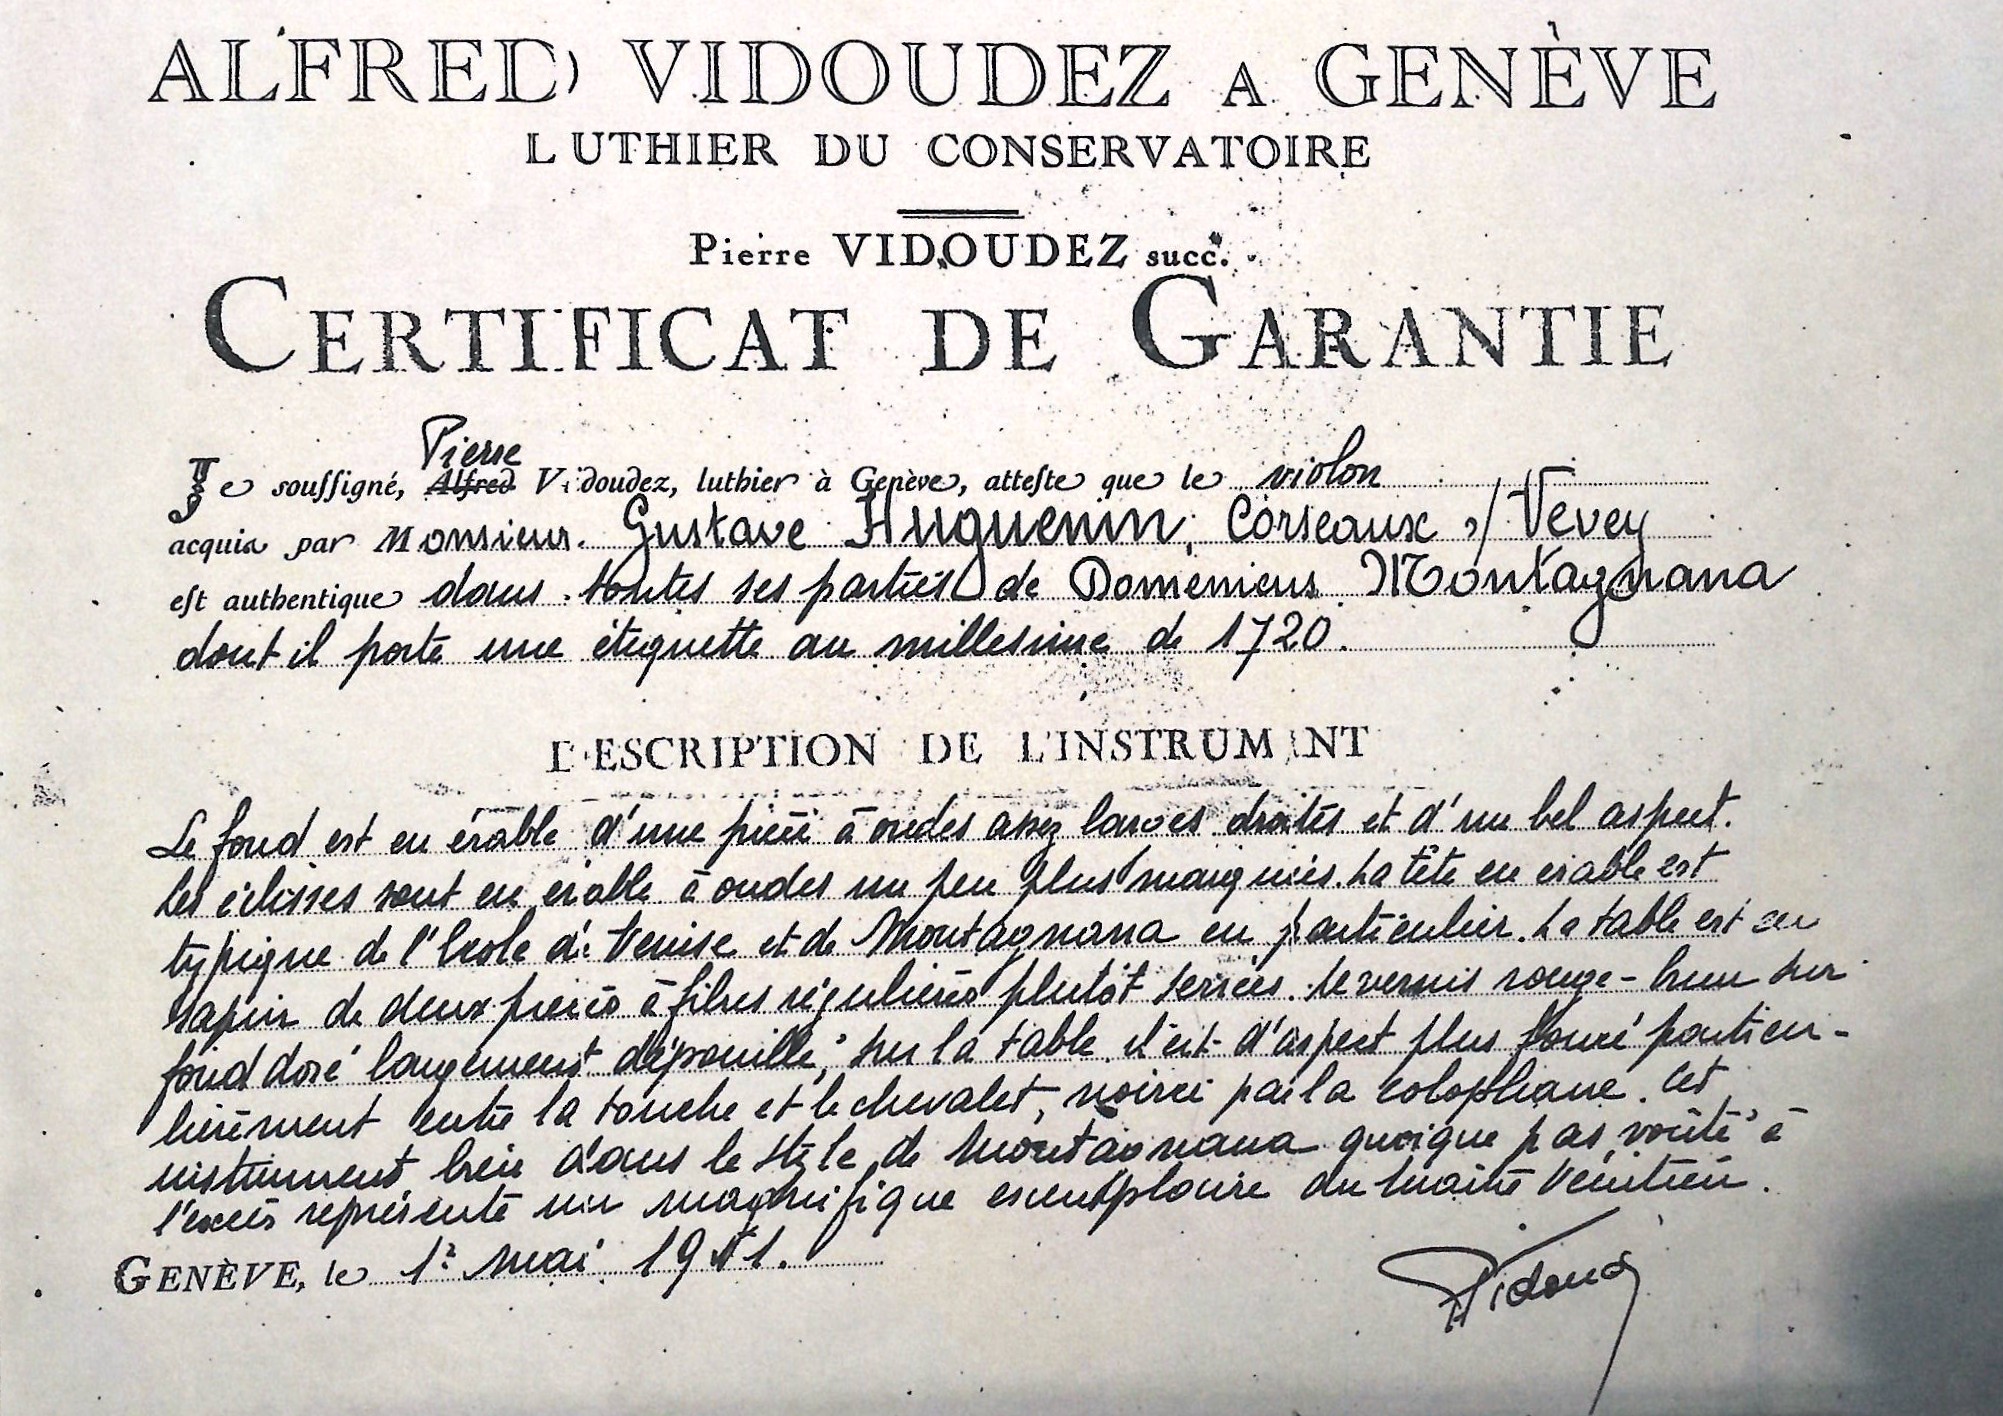 ALFRED VIDOUDEZ A GENÈVE
LUTHIER DU CONSERVATOIRE
Pierre VIDOUDEZ succ.
CERTIFICAT DE GARANTIE
Pierre
Je soussigné, Alfred Vidoudez, luthier à Genève, atteste que le violon
acquis par Monsieur Gustave Huguenin, Corseaux s/ Vevey
est authentique dans toutes ses parties de Domenicus Montagnana
dont il porte une étiquette au millesime de 1720.
DESCRIPTION DE L'INSTRUMENT
Le fond est en érable d'une pièce à ondes assez larges droites et d'un bel aspect.
Les éclisses sont en érable à ondes un peu plus marquées. La tête en érable est
typique de l'École de Venise et de Montagnana en particulier. La table est en
sapin de deux pièces à fibres régulières plutôt serrées. Le vernis rouge-brun sur
fond doré largement dépouillé; sur la table il est d'aspect plus foncé particu-
lièrement entre la touche et le chevalet, noirci par la colophane. Cet
instrument bien dans le style de Montagnana quoique pas voûté à
l'excès représente un magnifique exemplaire du Maître Vénitien.
GENÈVE, le 1er mai
Vidoud